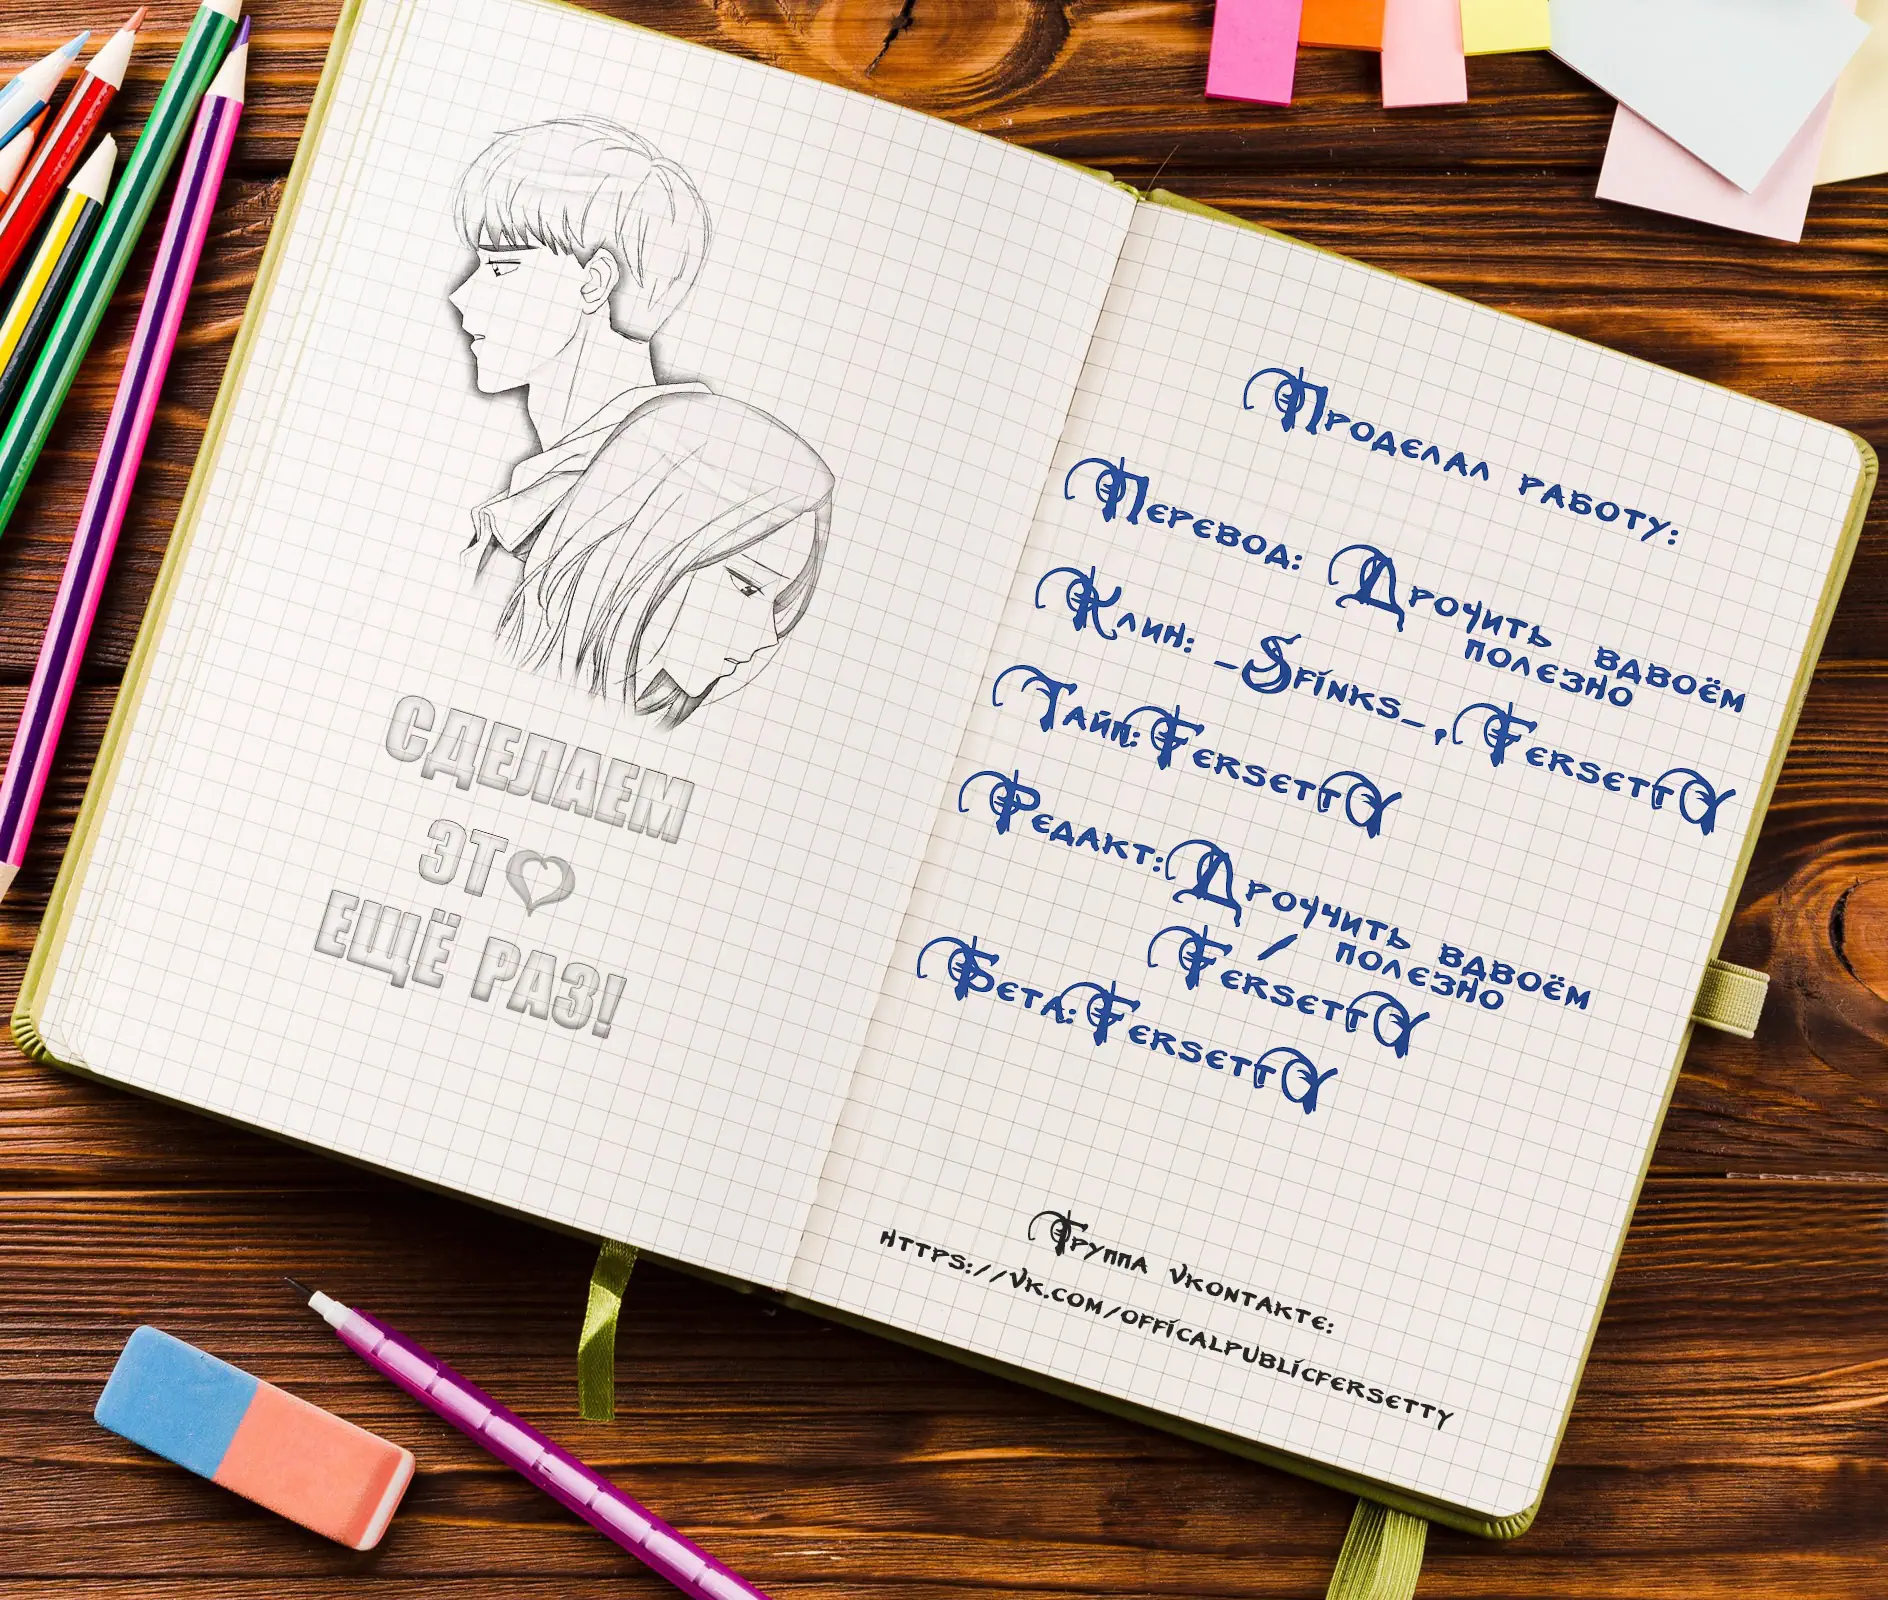 СДЕЛАЕМ
ЭТ♥
ЕЩЁ РАЗ!
Проделал работу:
Перевод: Дрочить вдвоём
полезно
Клин: _Sfinks_, Fersetty
Тайп: Fersetty
Редакт: Дроччить вдвоём
/ полезно
Fersetty
Бета: Fersetty
Группа vkontakte:
https://vk.com/officalpublicfersetty